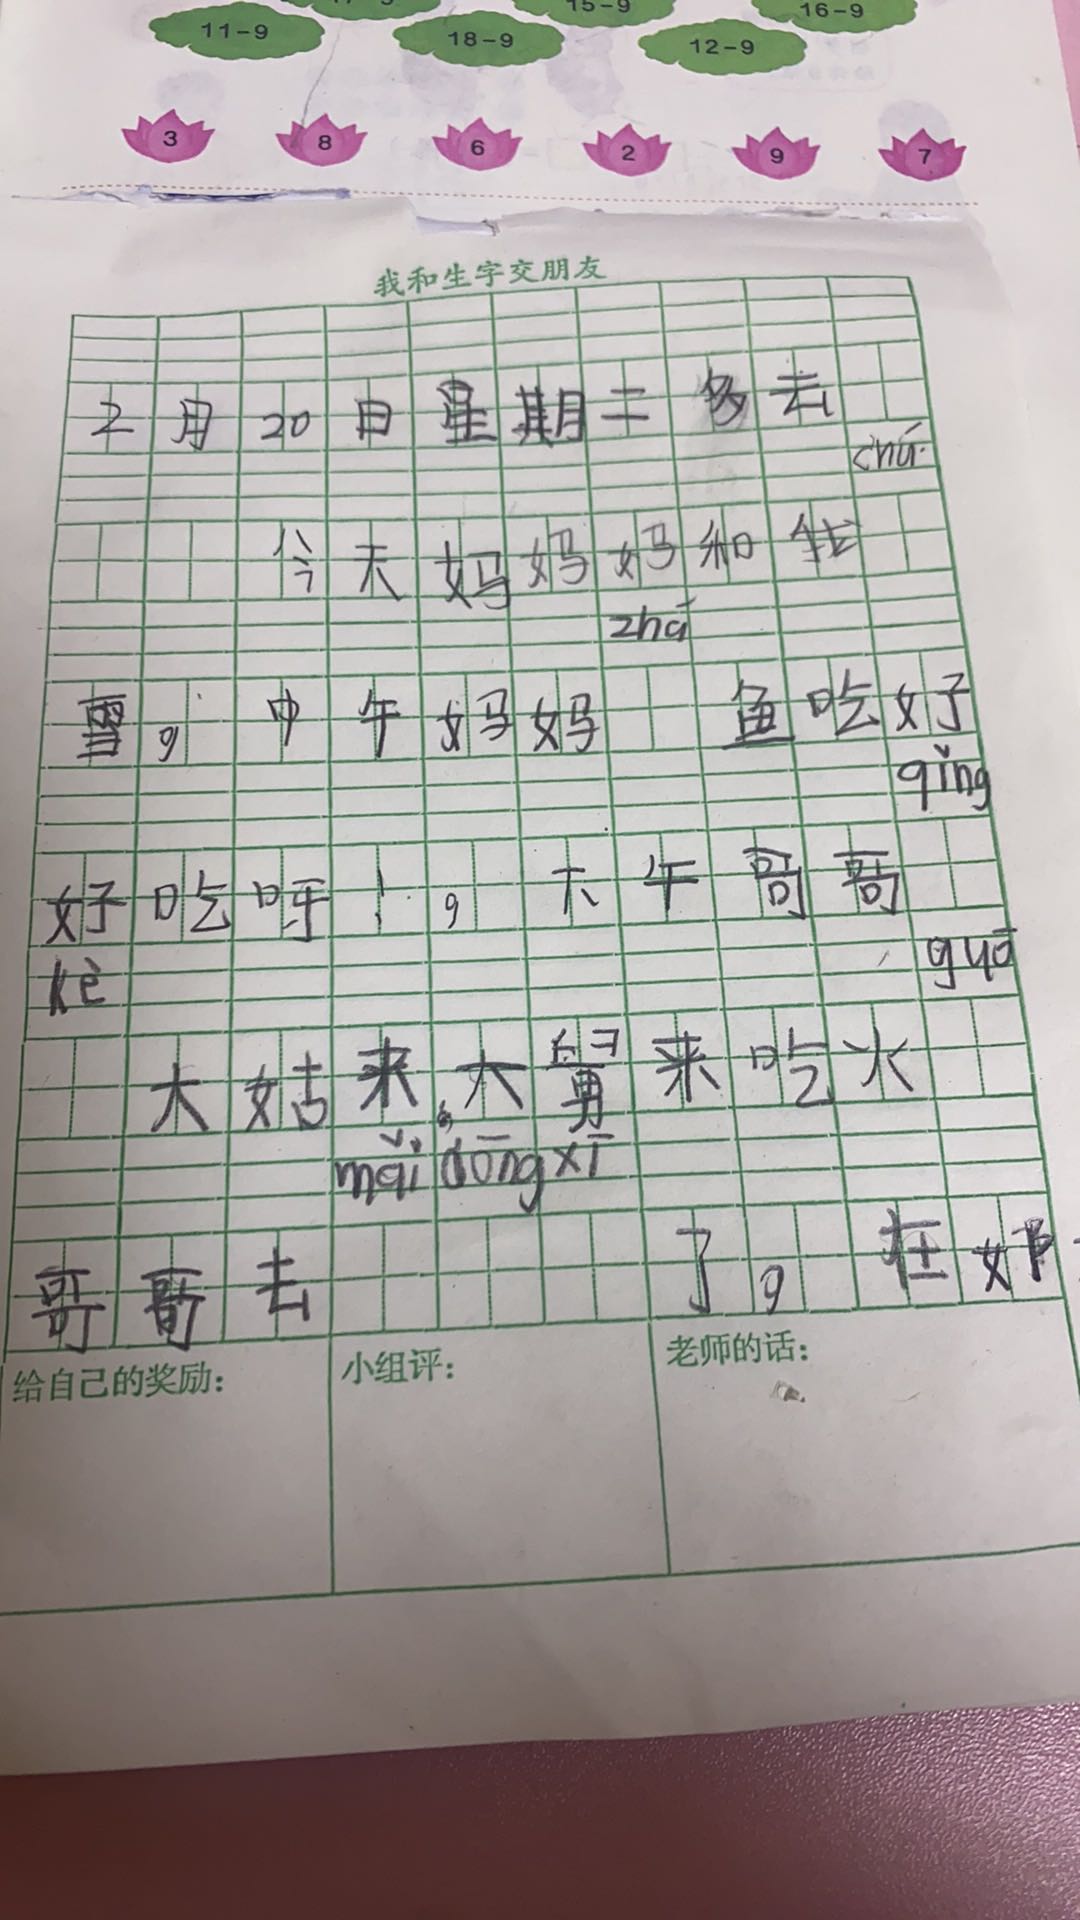 15-9 16-9
11-9 18-9 12-9
3 8 6 2 9 7
我和生字交朋友
2月20日星期二 多云
chǎ
今天妈妈妈和我
zhá
雪，中午妈妈 鱼吃好
qǐng
好吃呀！，下午哥哥
kè guō
大姑来，大舅来吃火
mǎi dōng xī
哥哥去 了，在奶
给自己的奖励： 小组评： 老师的话：